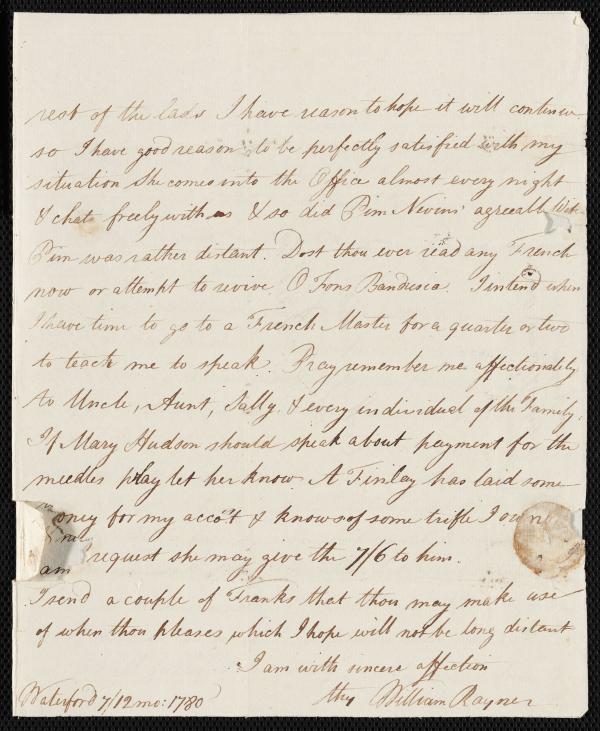 rest of the lads I have reason to hope it will continue
so I have good reason to be perfectly satisfied with my
situation She comes into the Office almost every night
& chats freely with us & so did Pim Nevins' agreeable Wife
Pim was rather distant. Dost thou ever read any French
now or attempt to revive O Fons Bandusia. I intend when
I have time to go to a French Master for a quarter or two
to teach me to speak. Pray remember me affectionately
to Uncle, Aunt, Sally, & every individual of the Family.
If Mary Hudson should speak about payment for the
needles pray let her know A Finlay has laid some
oney for my accot & knows of some trifle I own
request she may give the 7/6 to him.
am
I send a couple of Franks that thou may make use
of when thou pleases which I hope will not be long distant
I am with sincere affection
thy William Rayner
Waterford 7/12 mo: 1780